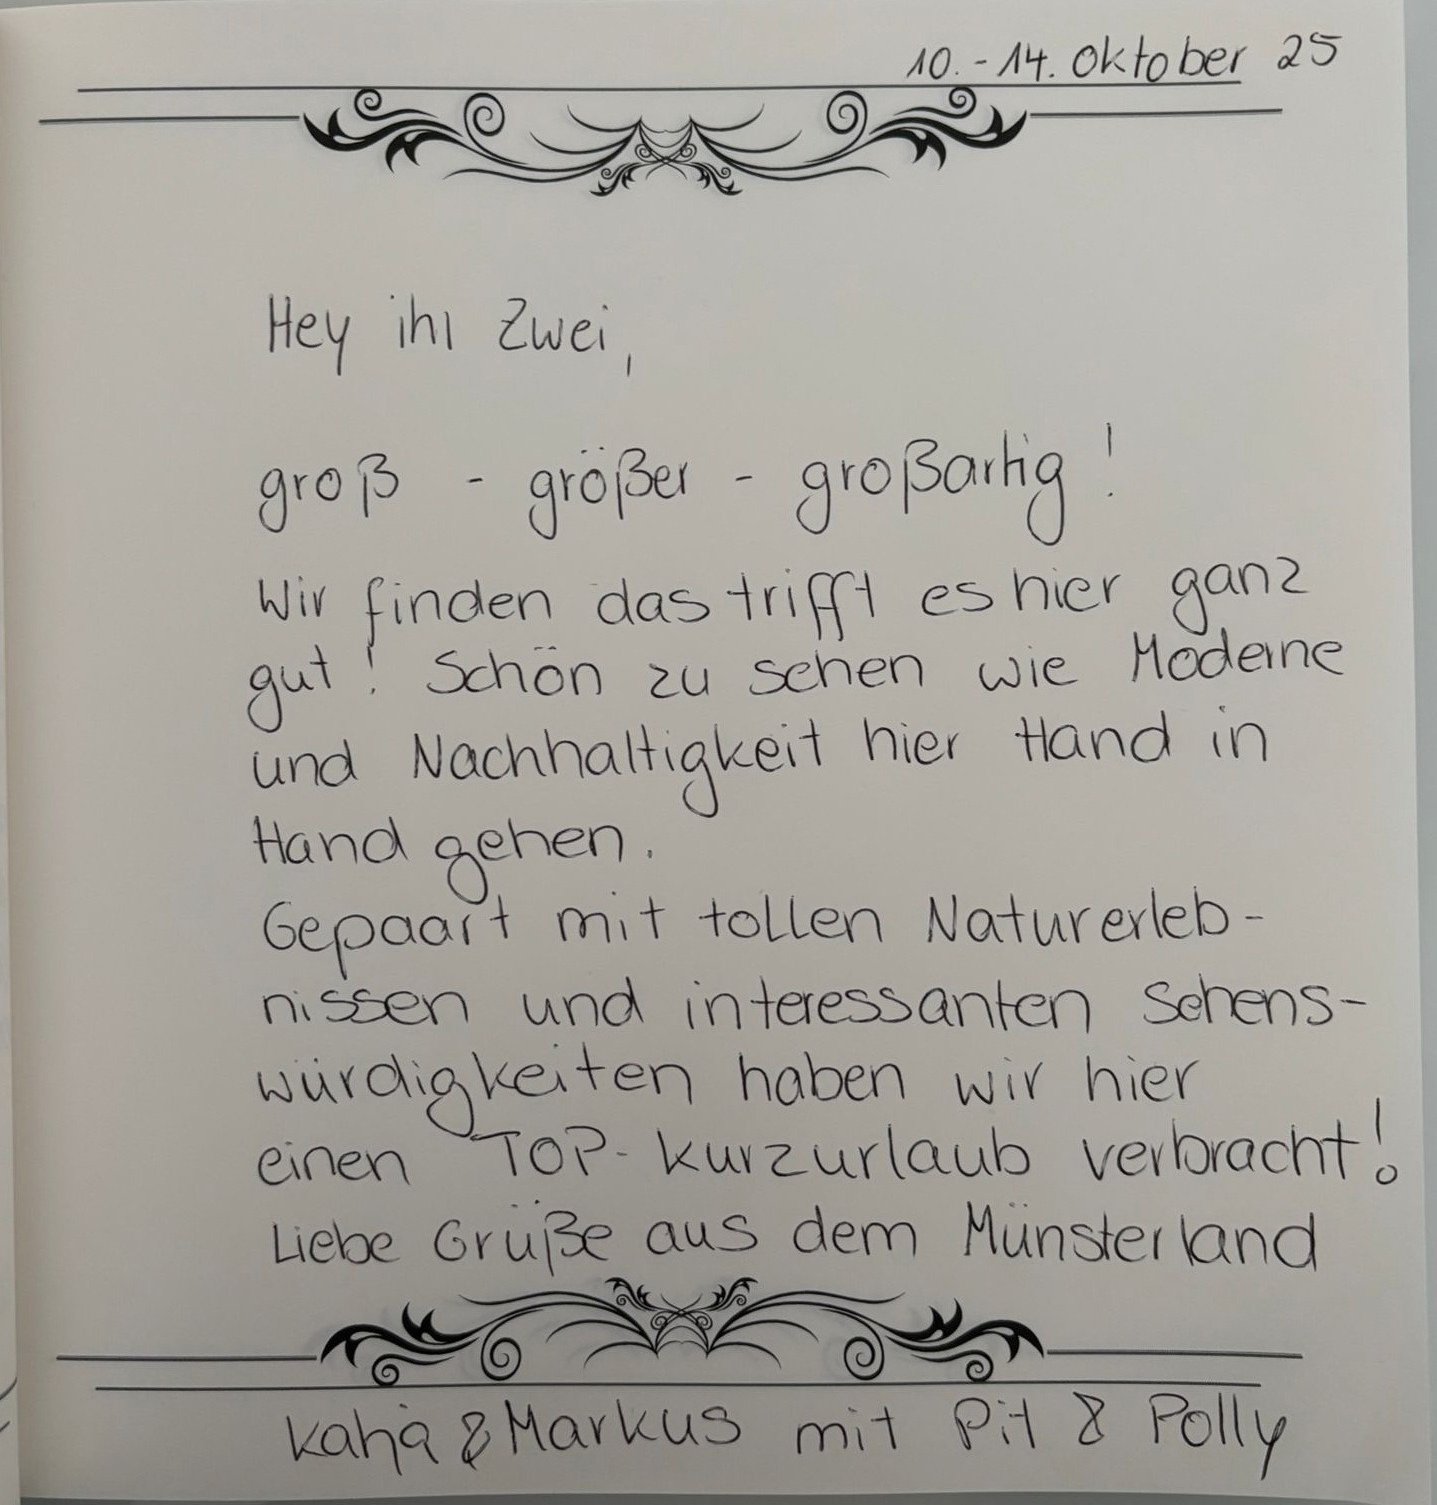 10.-14. Oktober 25
Hey ihr Zwei,
groß - größer - großartig!
Wir finden das trifft es hier ganz
gut! Schön zu sehen wie Moderne
und Nachhaltigkeit hier Hand in
Hand gehen.
Gepaart mit tollen Naturerleb-
nissen und interessanten Sehens-
würdigkeiten haben wir hier
einen TOP-Kurzurlaub verbracht!
Liebe Grüße aus dem Münsterland
Katja & Markus mit Pit & Polly